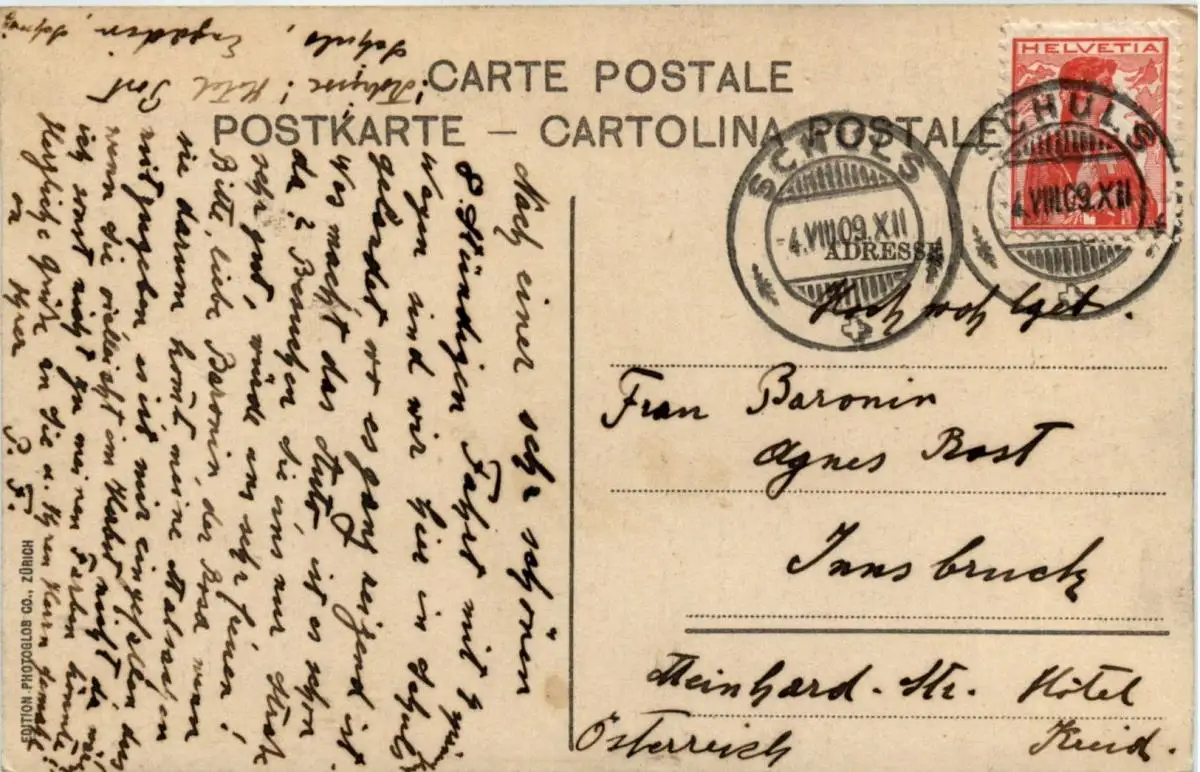 CARTE POSTALE
POSTKARTE — CARTOLINA POSTALE
HELVETIA
SCHULS
-4.VIII.09.XII
SCHULS
4.VIII.09.XII
ADRESSE
Hochwohlgeb.
Frau Baronin
Agnes
Innsbruck
Meinhard-Str. Hôtel
Österreich Kreid.
Adresse: Hotel Post
Schuls, Engadin
Nach einer sehr schönen
8 stündigen Fahrt mit
Wagen sind wir hier in Schuls
gelandet wo es ganz reizend ist
Was macht das Auto ist es schon
da? Besuchen Sie uns nur
sehr gut, würde uns sehr freuen!
Bitte, liebe Baronin, der wenn
sie darum komt meine
mitzugeben es ist mir eingefallen das
wenn Sie vielleicht im Herbst nicht da
ich sonst nicht zu meinen Farben könnte
Herzliche Grüße an Sie u. Ihren Herrn Gemahl
von Ihrer P. F.
EDITION-PHOTOGLOB CO., ZÜRICH